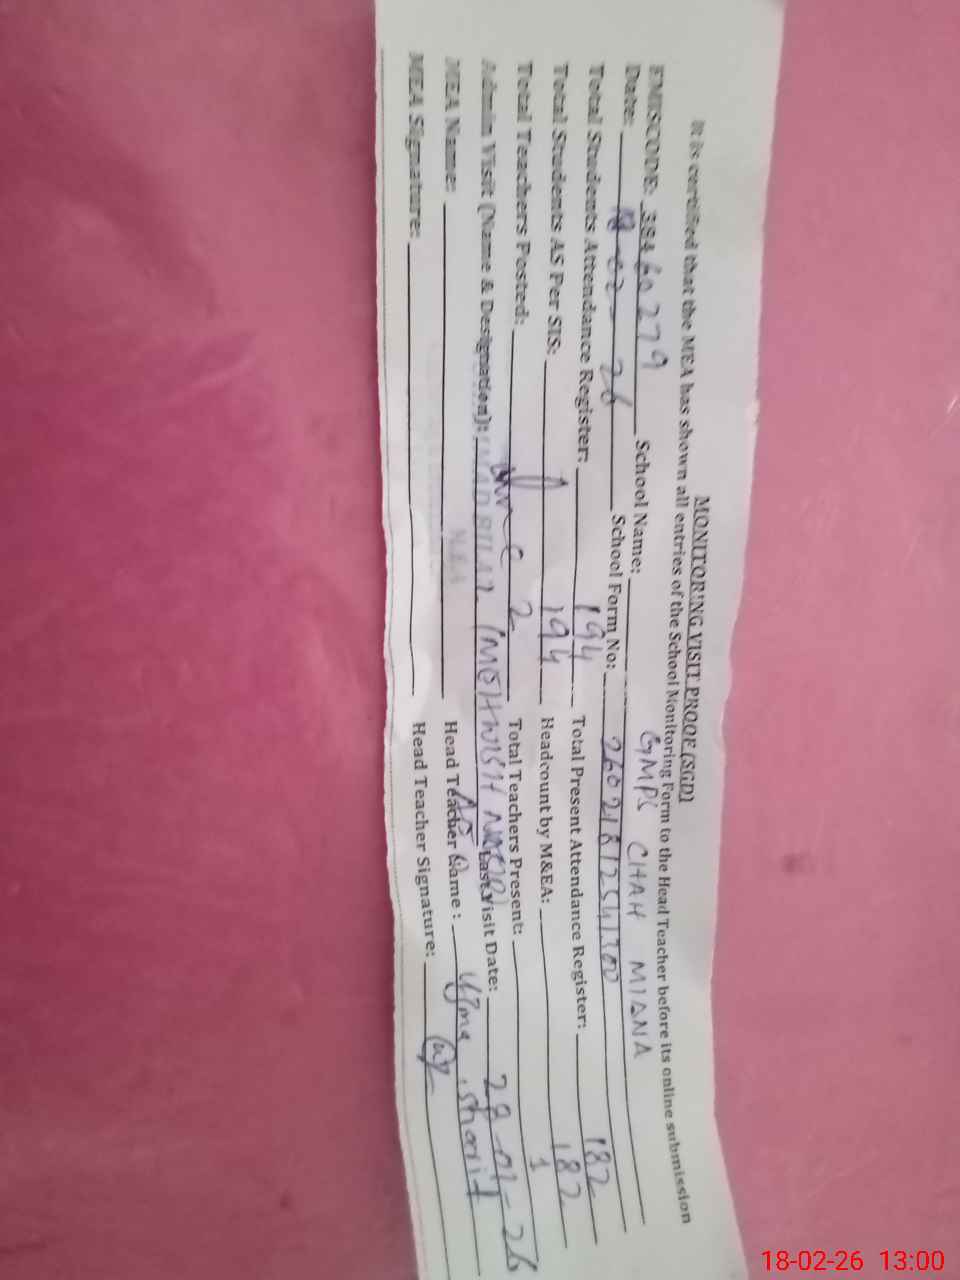 MONITORING VISIT PROOF (SGD)
It is certified that the MEA has shown all entries of the School Monitoring Form to the Head Teacher before its online submission
EMISCODE: 38460279 School Name: GMPS CHAH MIANA
Date: 18-02-26 School Form No: 26021812541300
Total Students Attendance Register: 194 Total Present Attendance Register: 182
Total Students AS Per SIS: 194 Headcount by M&EA: 182
Total Teachers Posted: 2 Total Teachers Present: 1
Admin Visit (Name & Designation): (MEHWISH Last Visit Date: 28-01-26
MEA Name: Head Teacher Name: Uzma Sharif
MEA Signature: Head Teacher Signature:
18-02-26 13:00